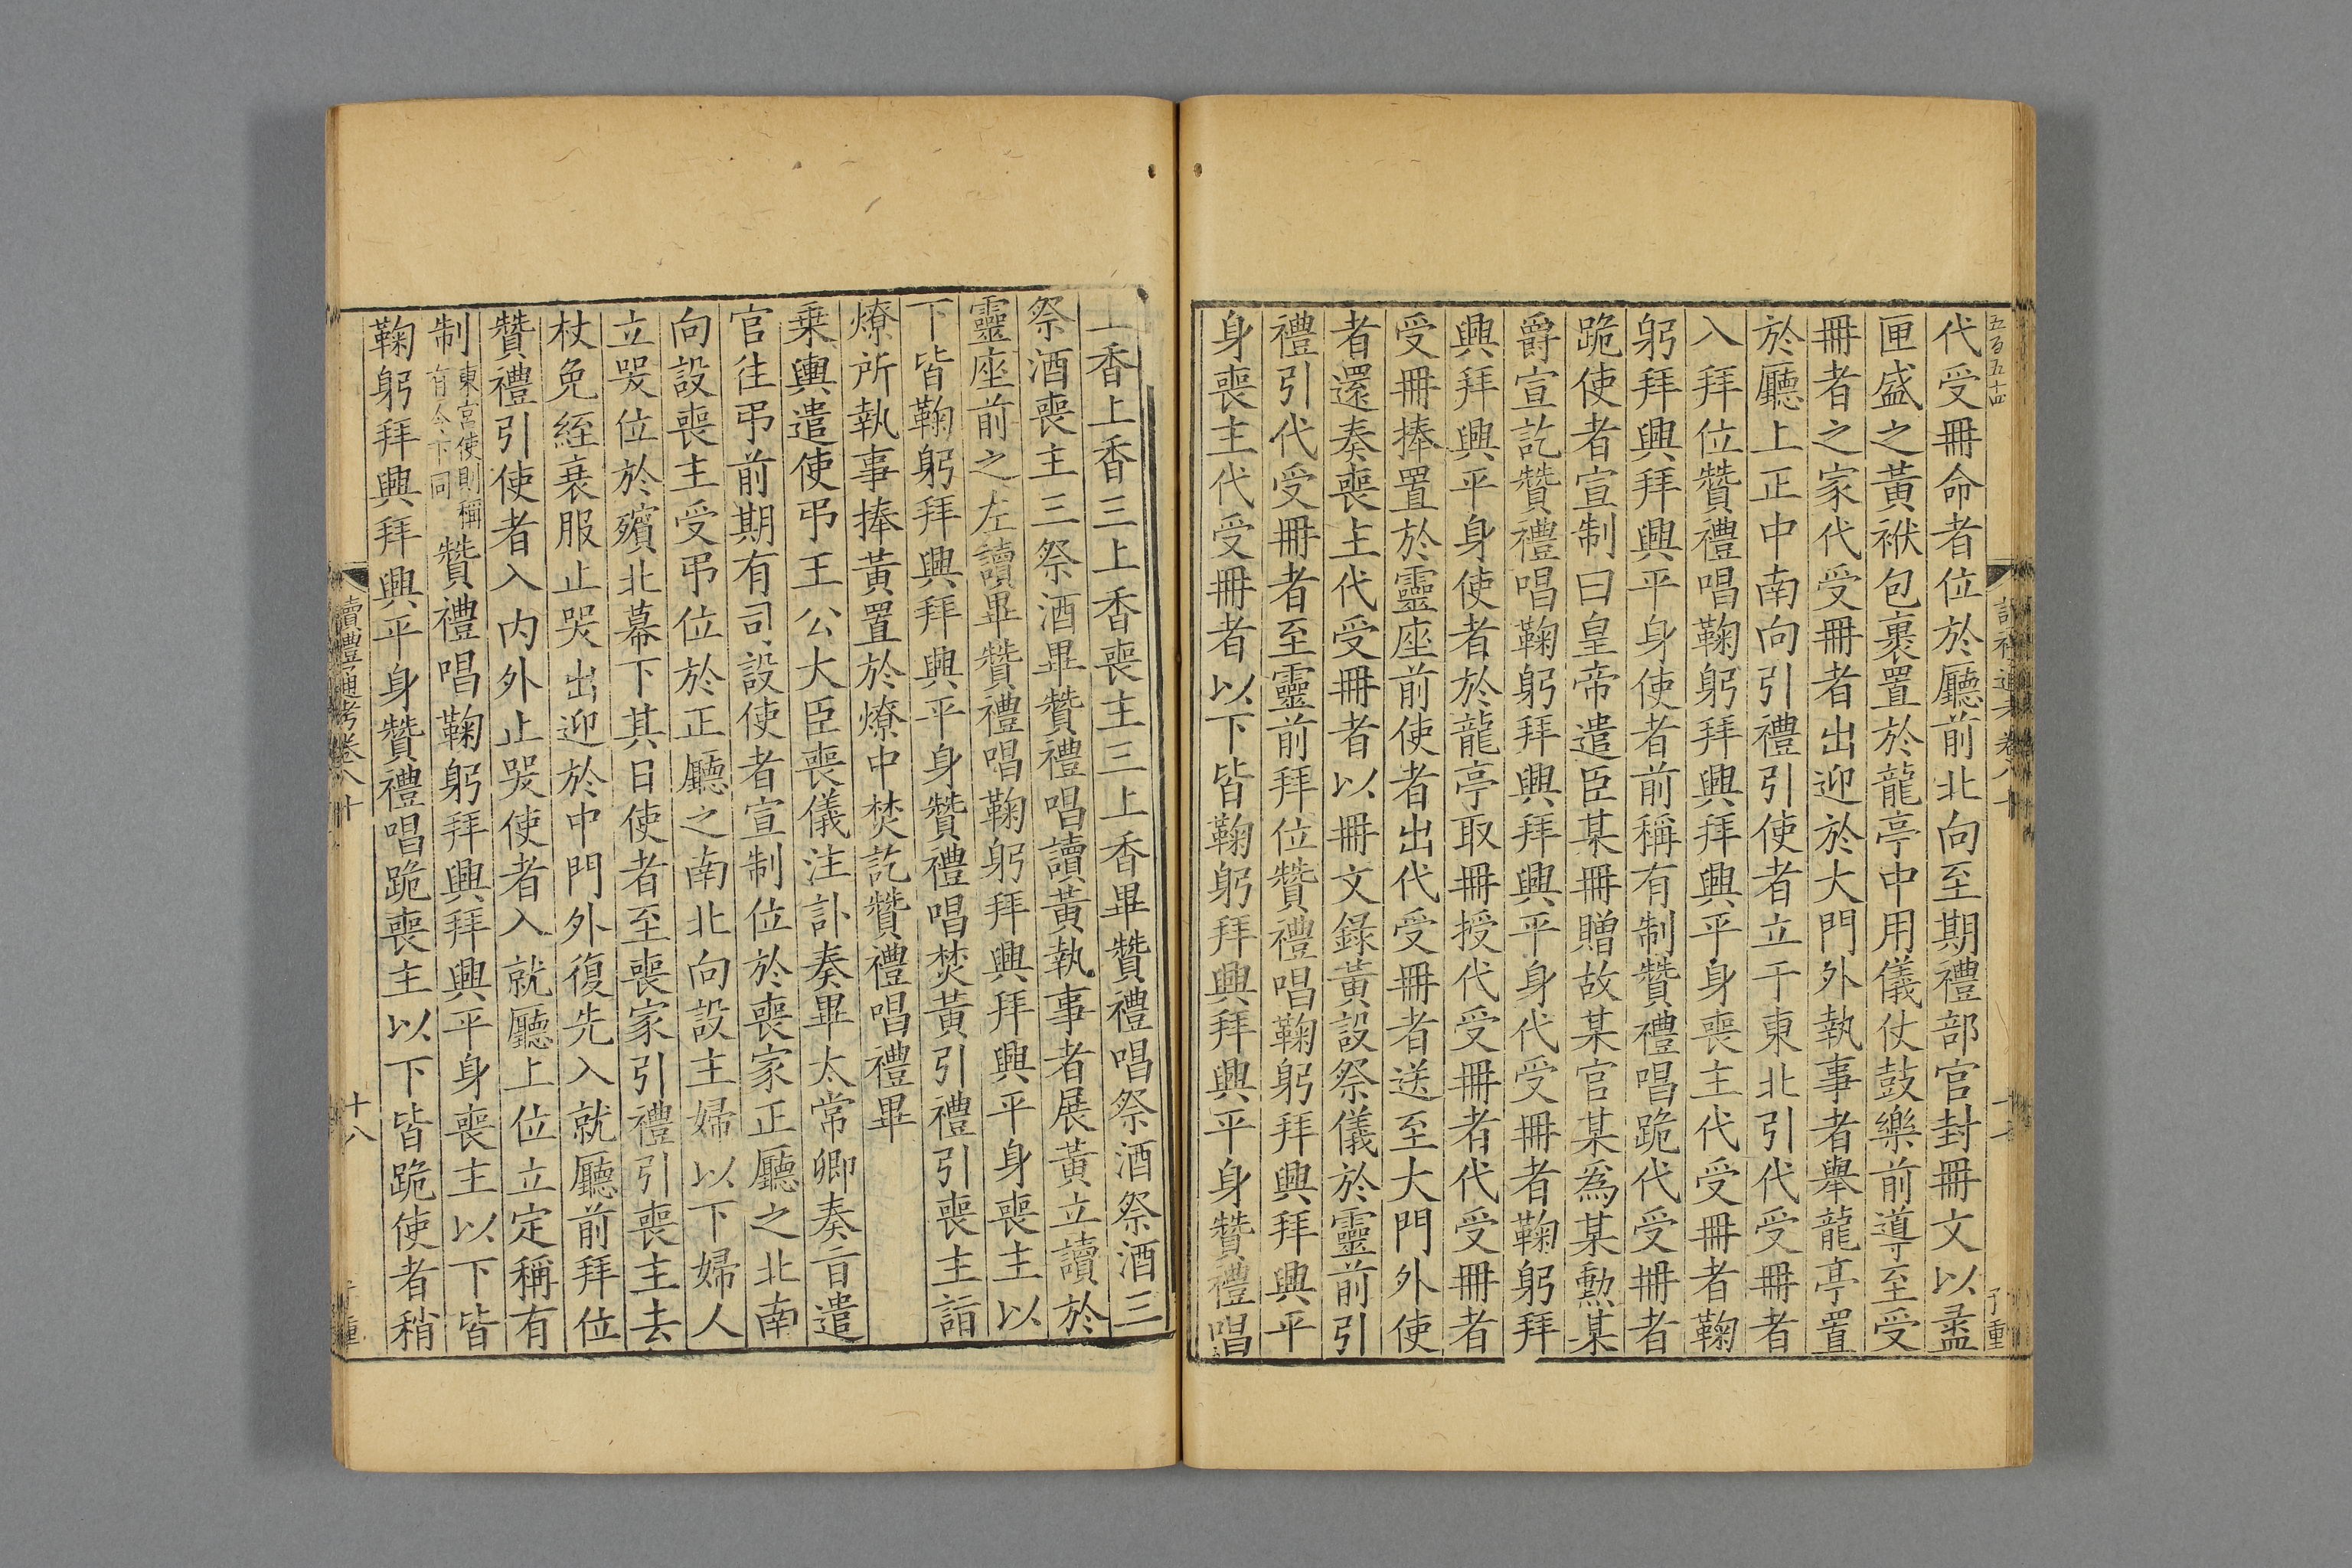 五百五十四
代受冊命者位於廳前北向至期禮部官封冊文以盝
匣盛之黃袱包裹置於龍亭中用儀仗鼓樂前導至受
冊者之家代受冊者出迎於大門外執事者舉龍亭置
於廳上正中南向引禮引使者立于東北引代受冊者
入拜位贊禮唱鞠躬拜興拜興平身喪主代受冊者鞠
躬拜興拜興平身使者前稱有制贊禮唱跪代受冊者
跪使者宣制曰皇帝遣臣某冊贈故某官某爲某勲某
爵宣訖贊禮唱鞠躬拜興拜興平身代受冊者鞠躬拜
興拜興平身使者於龍亭取冊授代受冊者代受冊者
受冊捧置於靈座前使者出代受冊者送至大門外使
者還奏喪主代受冊者以冊文錄黃設祭儀於靈前引
禮引代受冊者至靈前拜位贊禮唱鞠躬拜興拜興平
身喪主代受冊者以下皆鞠躬拜興拜興平身贊禮唱
上香上香三上香喪主三上香畢贊禮唱祭酒祭酒三
祭酒喪主三祭酒畢贊禮唱讀黃執事者展黃立讀於
靈座前之左讀畢贊禮唱鞠躬拜興拜興平身喪主以
下皆鞠躬拜興拜興平身贊禮唱焚黃引禮引喪主詣
燎所執事捧黃置於燎中焚訖贊禮唱禮畢
乗輿遣使弔王公大臣喪儀注訃奏畢太常卿奏㫖遣
官往弔前期有司設使者宣制位於喪家正廳之北南
向設喪主受弔位於正廳之南北向設主婦以下婦人
立哭位於殯北幕下其日使者至喪家引禮引喪主去
杖免絰衰服止哭出迎於中門外復先入就廳前拜位
贊禮引使者入内外止哭使者入就廳上位立定稱有
制東宮使則稱有令下同贊禮唱鞠躬拜興拜興平身喪主以下皆
鞠躬拜興拜興平身贊禮唱跪喪主以下皆跪使者稍
讀禮通考卷八十
十八